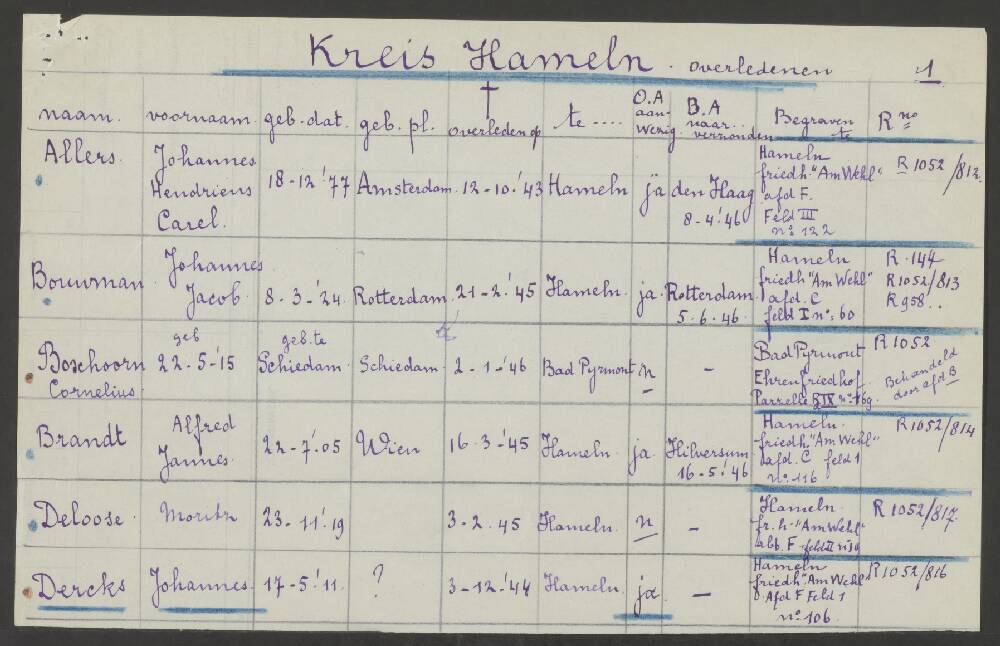 Kreis Hameln. overledenen 1
naam. voornaam. geb. dat. geb. pl. † overleden op te .... O.A aan- wezig B.A naar.. verzonden Begraven te R no
Allers. Johannes Hendriens Carel. 18-12-'77 Amsterdam. 12-10-'43 Hameln ja den Haag 8-4-'46 Hameln friedh. "Am Wehl" afd F. Feld III no 122 R 1052/812.
Bouwman Johannes Jacob. 8-3-'24 Rotterdam. 21-2-'45 Hameln ja. Rotterdam. 5-6-'46. Hameln friedh "Am Wehl" afd. C feld I no: 60 R. 144 R1052/813 R 958..
Boschoorn Cornelius. geb 22-5-'15 geb. te Schiedam. Schiedam. 2-1-'46 Bad Pyrmont n - Bad Pyrmont Ehrenfriedhof. Parzelle BIX no 169. R 1052 Behandeld door afd B
Brandt Alfred Jannes. 22-7-'05 Wien 16-3-'45 Hameln. ja. Hilversum 16-5-'46 Hameln. friedh. "Am Wehl" afd. C feld 1 no 116 R1052/814
Deloose. Moritz 23-11-'19 3-2-45 Hameln. n - Hameln. fr. h. "Am Wehl" abt. F feld II R 1052/817.
Dercks Johannes. 17-5-'11. ? 3-12-'44 Hameln. ja - Hameln friedh "Am Wehl Afd F Feld 1 no 106 R1052/816